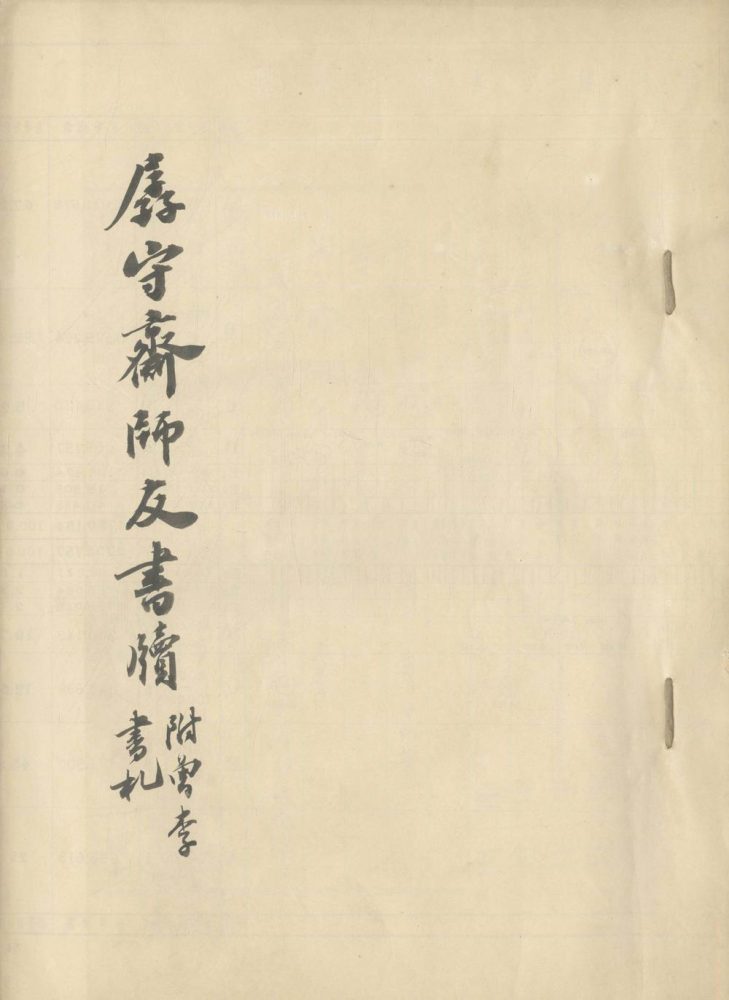 孱守齋師友書牘
附曾李
書札